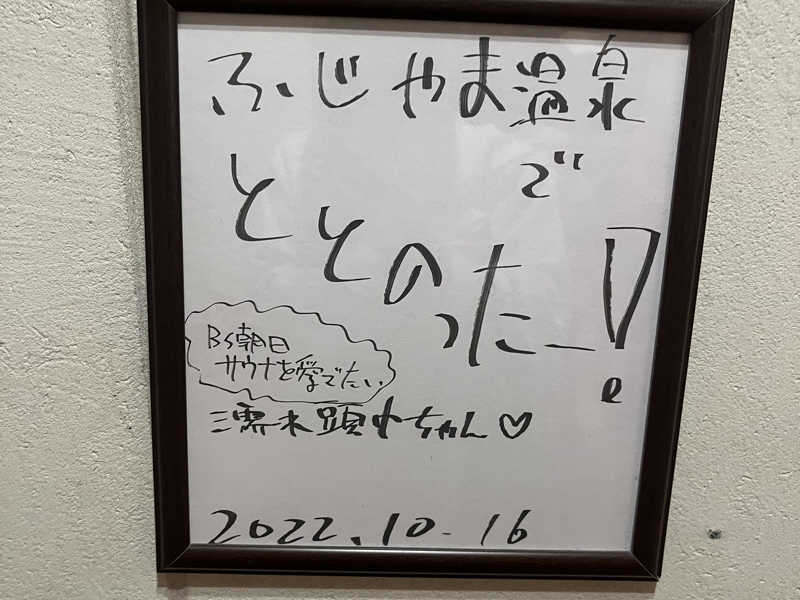 ふじやま温泉
で
ととのったー!
BS朝日
サウナを愛でたい
濡れ頭巾ちゃん♡
2022.10-16